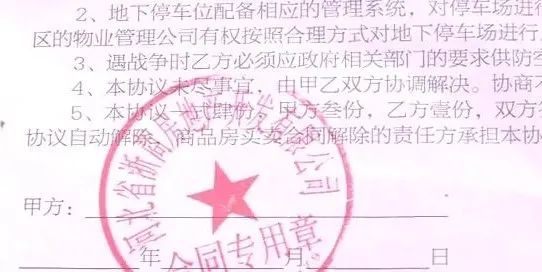 2、地下停车位配备相应的管理系统，对停车场进行
区的物业管理公司有权按照合理方式对地下停车场进行
3、遇战争时乙方必须应政府相关部门的要求供防空
4、本协议未尽事宜，由甲乙双方协调解决。协商不
5、本协议一式肆份，甲方叁份，乙方壹份，双方签
协议自动解除，商品房买卖合同解除的责任方承担本协
甲方：
年 月 日
河北省浙商房地产开发有限公司
合同专用章